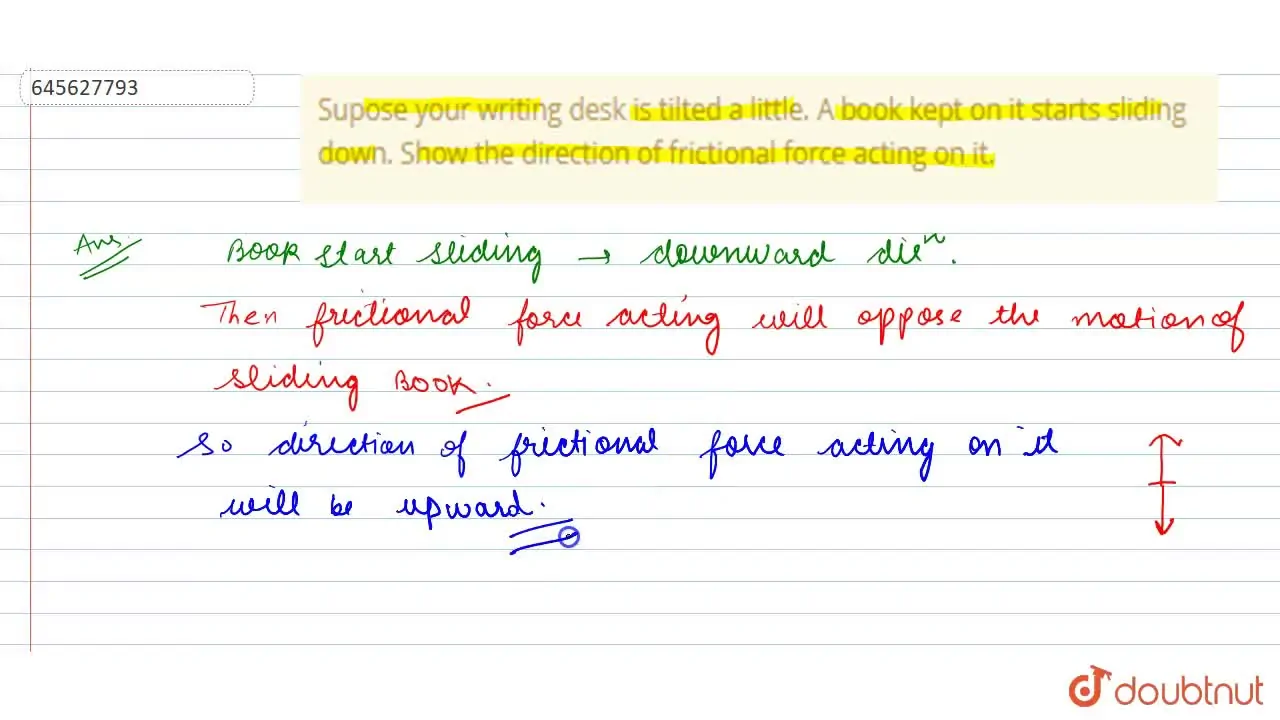 645627793
Supose your writing desk is tilted a little. A book kept on it starts sliding
down. Show the direction of frictional force acting on it.
Ans.
Book start sliding → downward dirⁿ.
Then frictional force acting will oppose the motion of
sliding Book.
So direction of frictional force acting on it
will be upward.
doubtnut